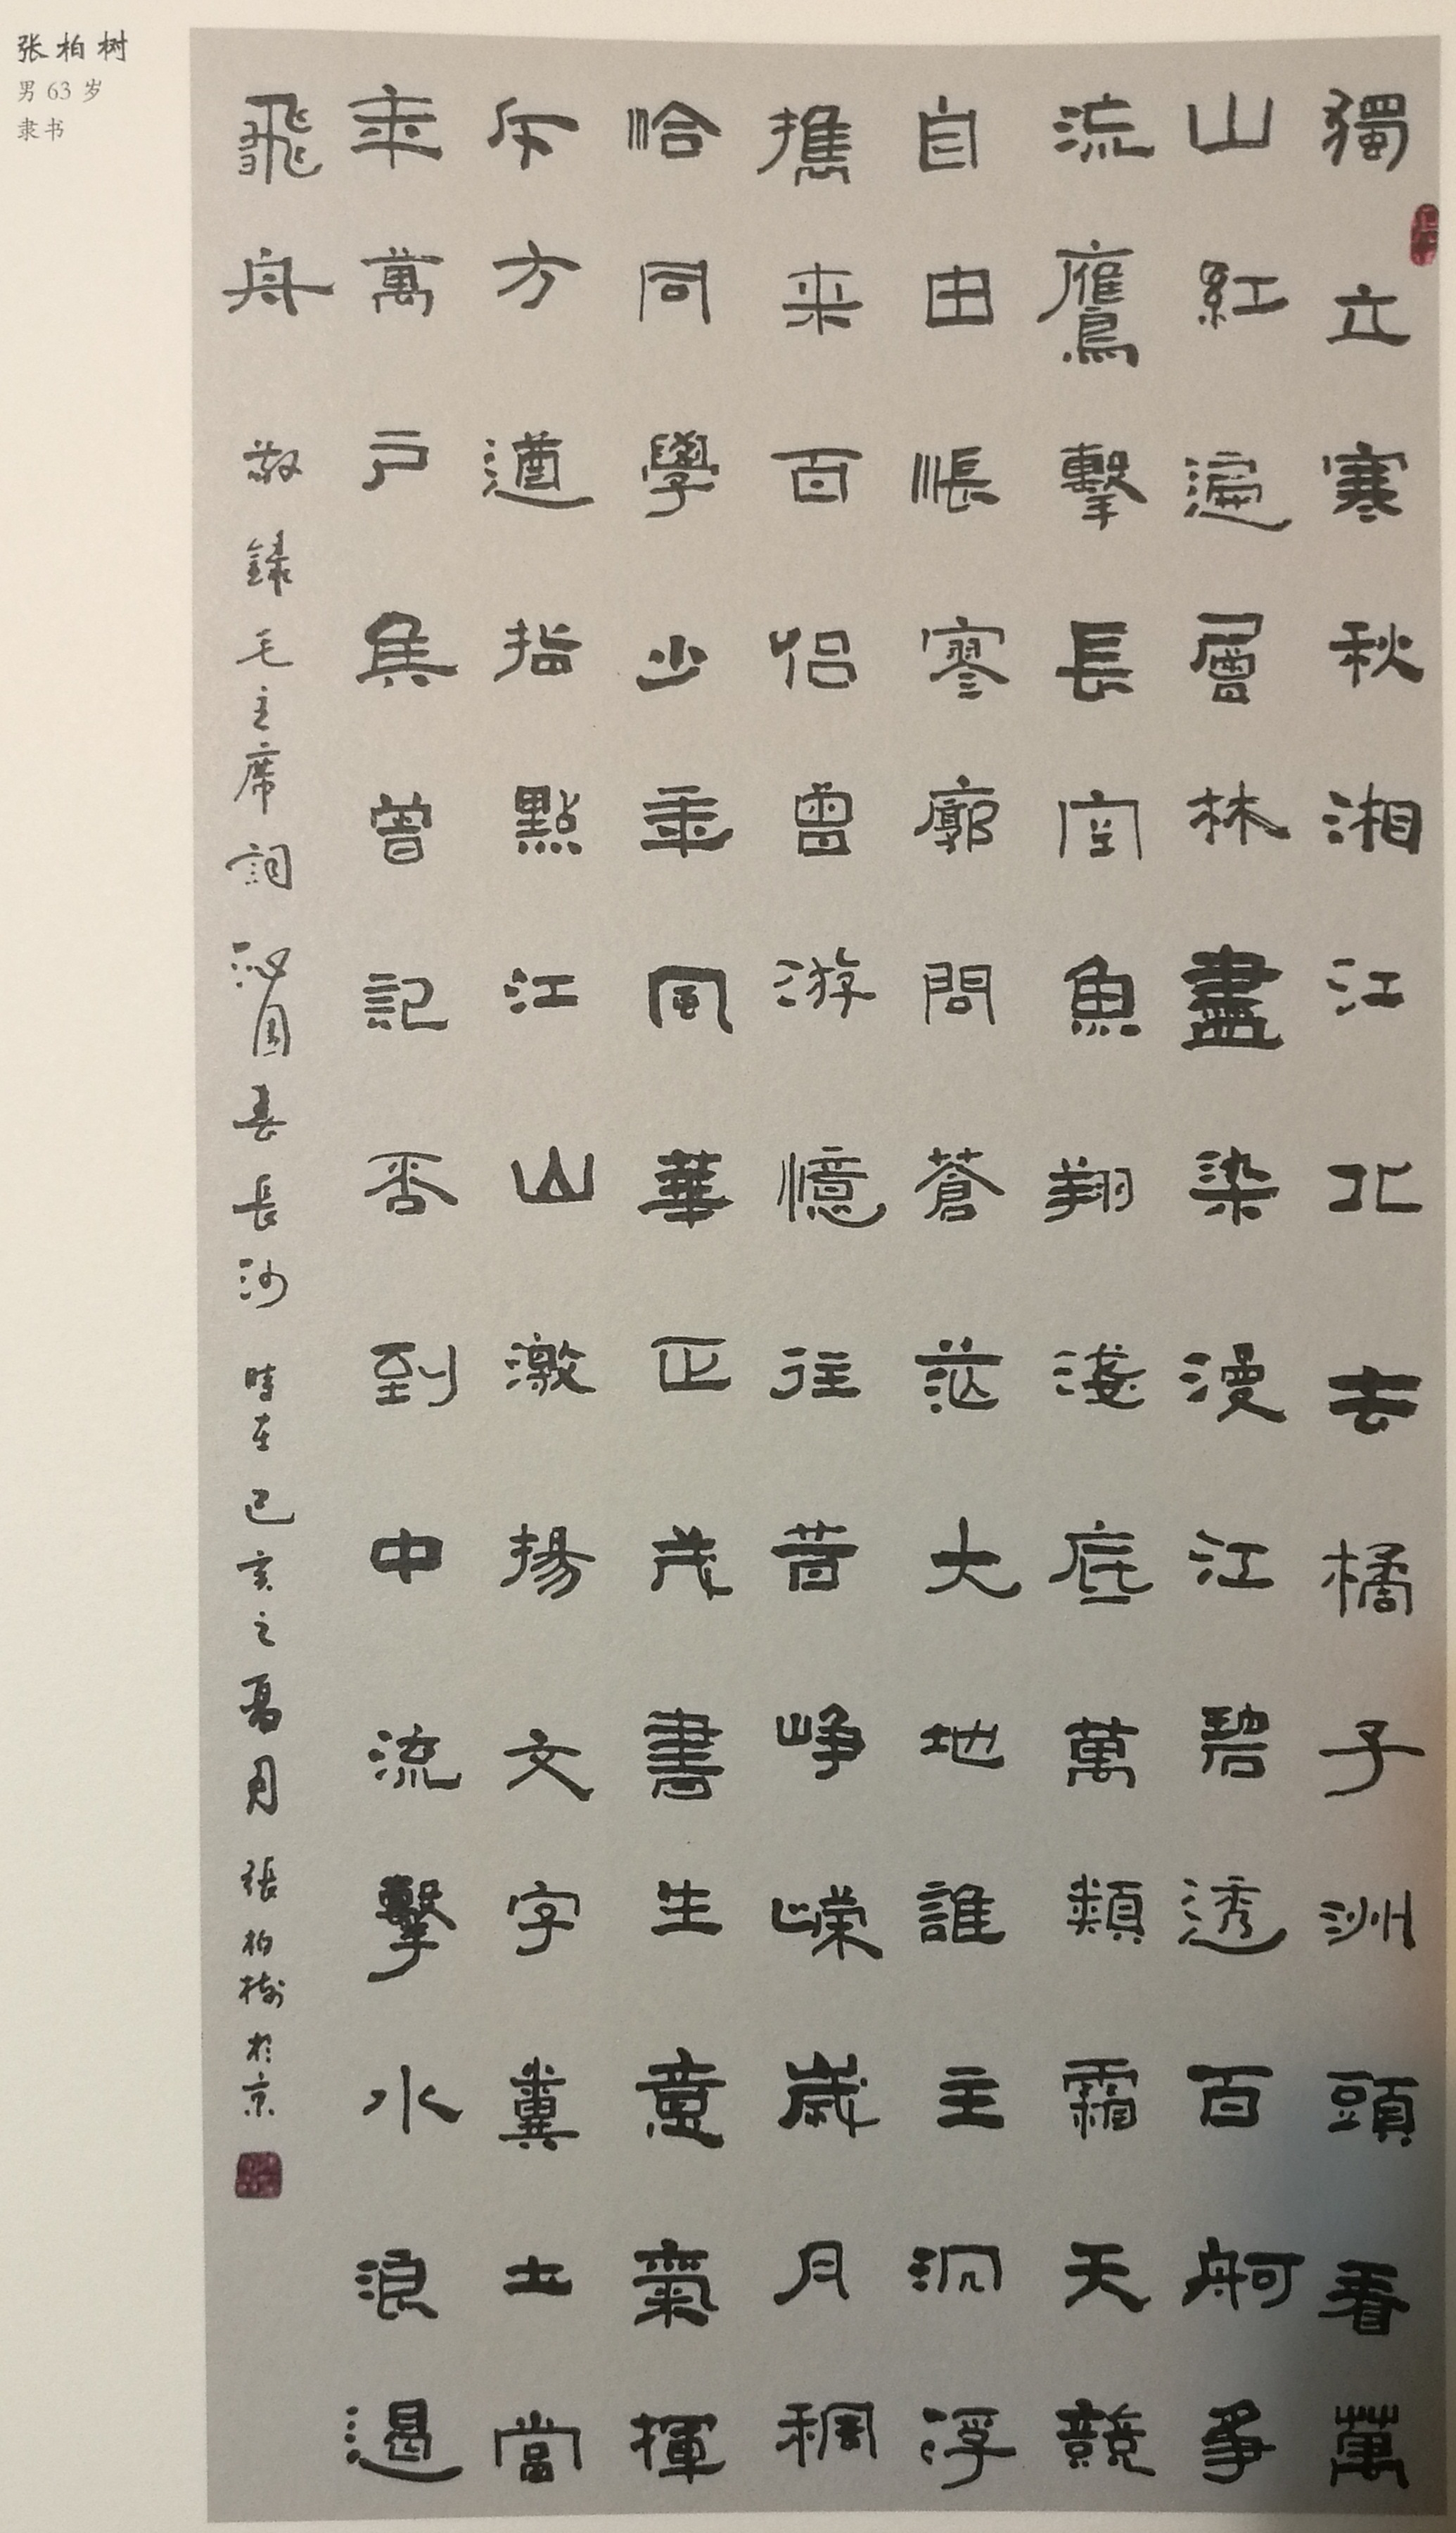 张柏树
男 63 岁
隶书
獨立寒秋湘江北去橘子洲頭看萬
山紅遍層林盡染漫江碧透百舸爭
流鷹擊長空魚翔淺底萬類霜天競
自由悵寥廓問蒼茫大地誰主沉浮
攜来百侣曾游憶往昔崢嶸歲月稠
恰同學少年風華正茂書生意氣揮
斥方遒指點江山激揚文字糞土當
年萬户侯曾記否到中流擊水浪遏
飛舟 敬録毛主席詞沁園春長沙 時在己亥之夏月 張柏樹於京